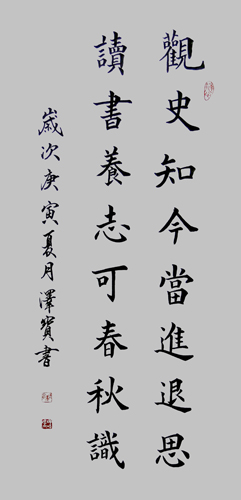 觀史知今當進退思
讀書養志可春秋識
歲次庚寅夏月澤寶書